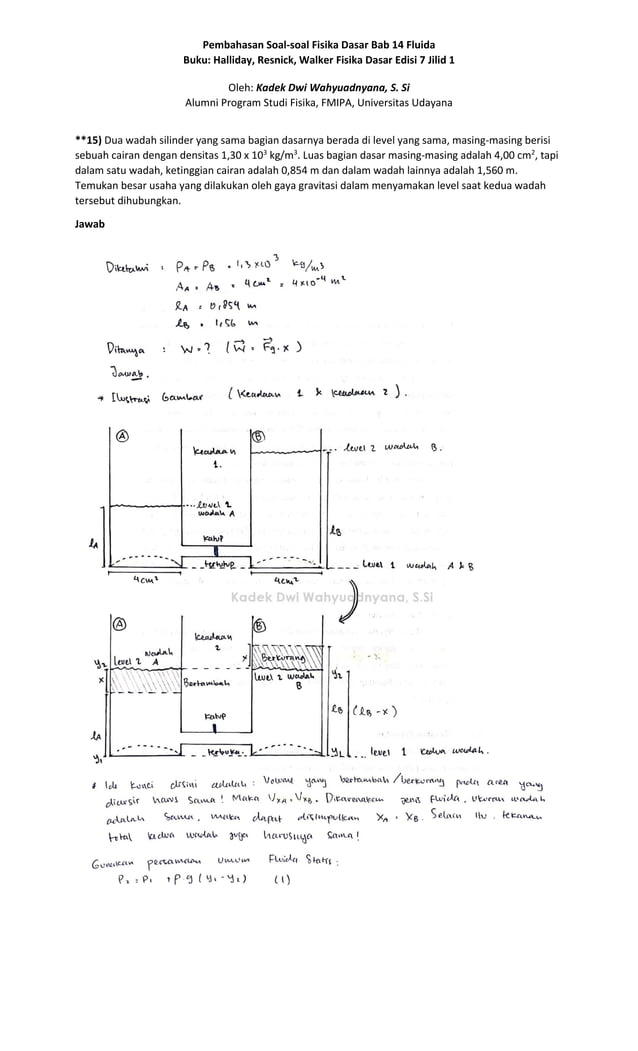 Pembahasan Soal-soal Fisika Dasar Bab 14 Fluida
Buku: Halliday, Resnick, Walker Fisika Dasar Edisi 7 Jilid 1
Oleh: Kadek Dwi Wahyuadnyana, S. Si
Alumni Program Studi Fisika, FMIPA, Universitas Udayana
**15) Dua wadah silinder yang sama bagian dasarnya berada di level yang sama, masing-masing berisi
sebuah cairan dengan densitas 1,30 x 10³ kg/m³. Luas bagian dasar masing-masing adalah 4,00 cm², tapi
dalam satu wadah, ketinggian cairan adalah 0,854 m dan dalam wadah lainnya adalah 1,560 m.
Temukan besar usaha yang dilakukan oleh gaya gravitasi dalam menyamakan level saat kedua wadah
tersebut dihubungkan.
Jawab
Diketahui : ρA = ρB = 1,3 × 10³ kg/m³
AA = AB = 4 cm² = 4 × 10⁻⁴ m²
lA = 0,854 m
lB = 1,56 m
Ditanya : W = ? (W⃗ = F⃗g . x)
Jawab.
→ Ilustrasi Gambar (Keadaan 1 & Keadaan 2).
A
B
Keadaan
1.
level 2 wadah B.
level 2
wadah A
lA
lB
Katup
tertutup
Level 1 wadah A & B
4cm²
4cm²
Kadek Dwi Wahyuadnyana, S.Si
A
B
Keadaan
2
Wadah
y₂ Level 2 A
x
Berkurang
x
Bertambah
level 2 wadah
B
y₂
lB (lB - x)
Katup
lA
y₁
terbuka
y₁ level 1 kedua wadah.
* Ide kunci disini adalah : Volume yang bertambah/berkurang pada area yang
diarsir harus sama! Maka VxA = VxB. Dikarenakan jenis fluida, ukuran wadah
adalah sama, maka dapat disimpulkan xA = xB. Selain itu, tekanan
total kedua wadah juga harusnya sama!
Gunakan persamaan umum Fluida Statis :
P₂ = P₁ + ρ g (y₁ - y₂) (1)